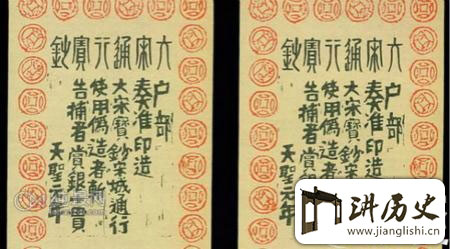 大宋通行寶鈔
户部
奏准印造
大宋寶鈔宋城通行
使用偽造者斬
告捕者賞銀
天聖元年
大宋通行寶鈔
户部
奏准印造
大宋寶鈔宋城通行
使用偽造者
告捕者賞銀
天聖元年
讲历史
www.jianglishi.cn